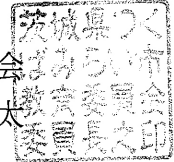 茨城県つく
ばみらい市
教育委員会
委員長之印
会
太